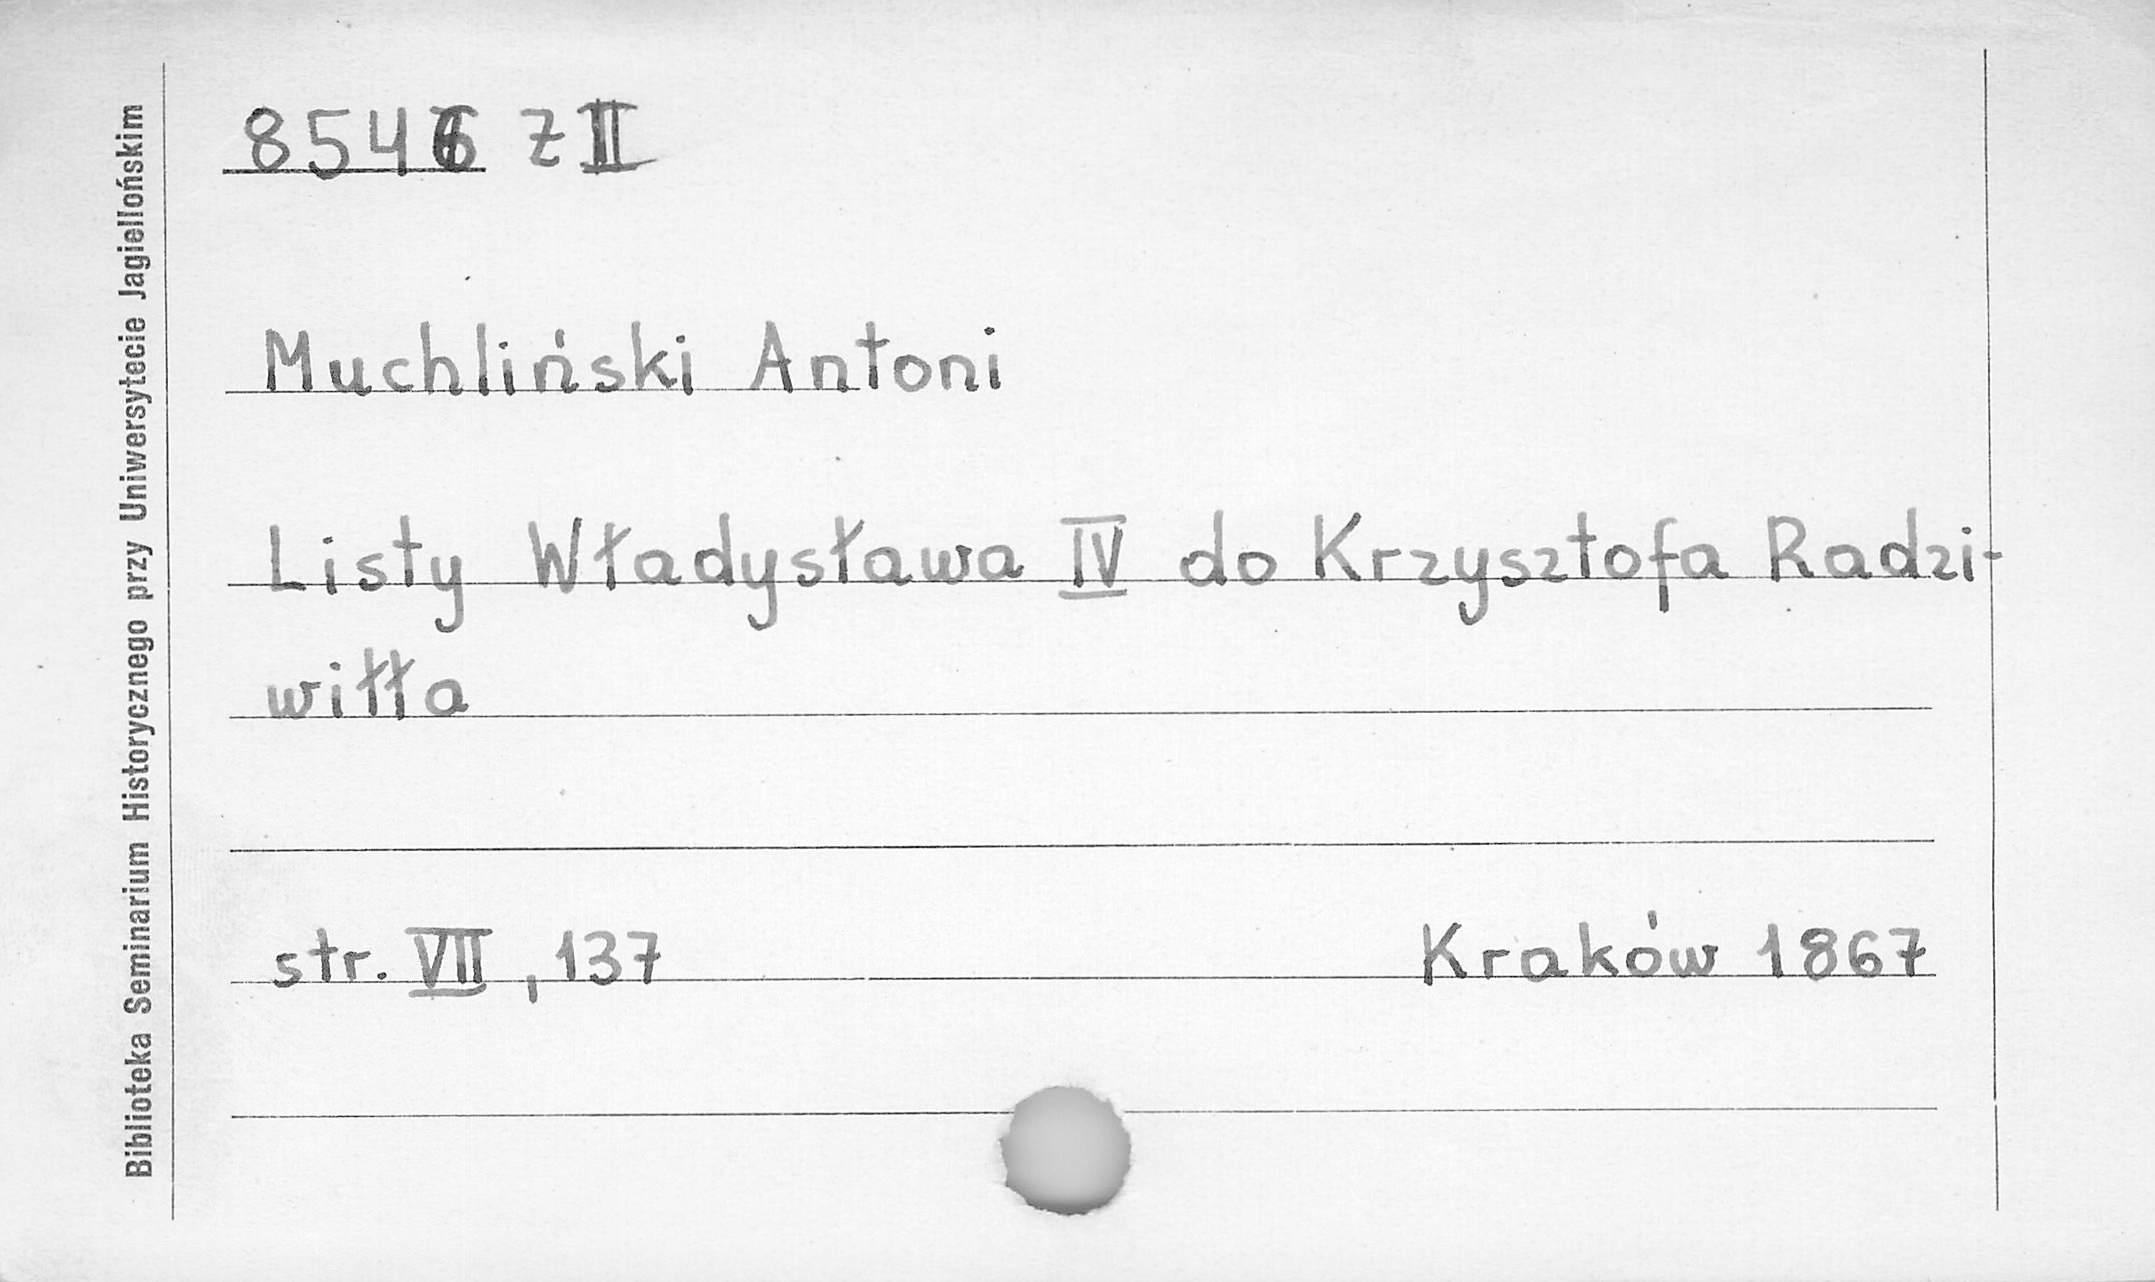 8546 Z II
Muchliński Antoni
Listy Władysława IV do Krzysztofa Radzi-
wiłła
str. VII, 137
Kraków 1867
Biblioteka Seminarium Historycznego przy Uniwersytecie Jagiellońskim